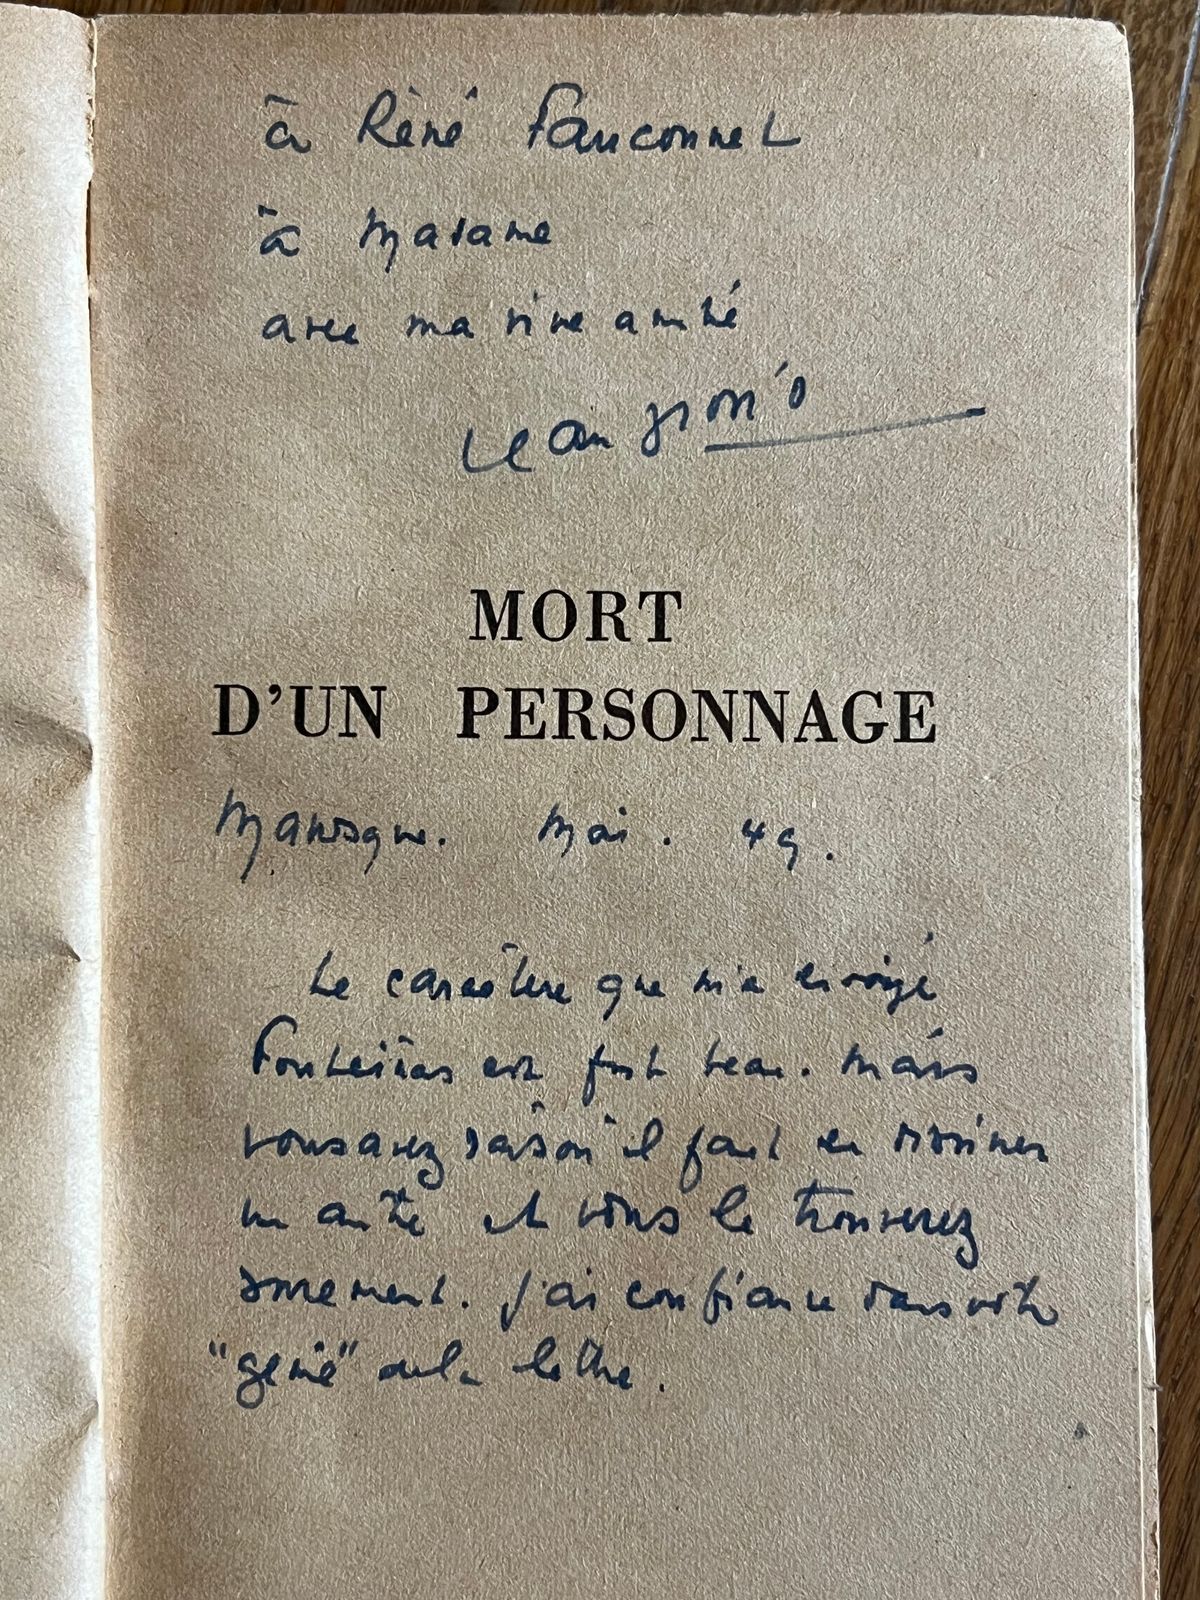 à René Fauconnet
à Madame
avec ma vive amitié
Jean Giono
MORT
D'UN PERSONNAGE
Manosque. Mai. 49.
Le caractère que m'a envoyé
est fort beau. Mais
vous avez raison il faut en dessiner
un autre et vous le trouverez
sûrement. J'ai confiance dans votre
"génie" de la lettre.